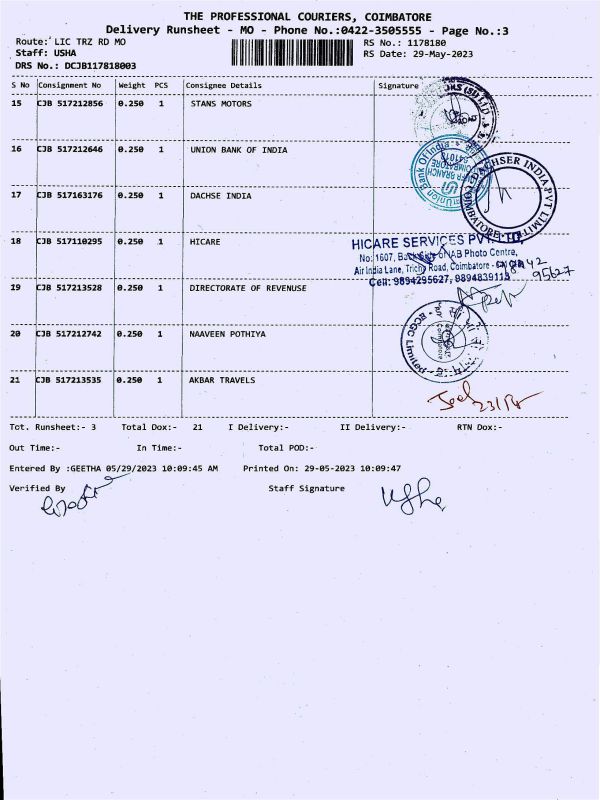 THE PROFESSIONAL COURIERS, COIMBATORE
Delivery Runsheet - MO - Phone No.:0422-3505555 - Page No.:3
Route: LIC TRZ RD MO
RS No.: 1178180
Staff: USHA
RS Date: 29-May-2023
DRS No.: DCJB117818003
S No Consignment No Weight PCS Consignee Details Signature
15 CJB 517212856 0.250 1 STANS MOTORS
16 CJB 517212646 0.250 1 UNION BANK OF INDIA
Union Bank Of India
641018
BRANCH
COIMBATORE
17 CJB 517163176 0.250 1 DACHSE INDIA
DACHSER INDIA PVT LIMITED
COIMBATORE
18 CJB 517110295 0.250 1 HICARE
HICARE SERVICES PVT. LTD,
No: 1607, NAB Photo Centre,
Air India Lane, Trichy Road, Coimbatore -
Cell: 9894295627, 9894839113
95627
19 CJB 517213528 0.250 1 DIRECTORATE OF REVENUSE
20 CJB 517212742 0.250 1 NAAVEEN POTHIYA
ECGC Limited
21 CJB 517213535 0.250 1 AKBAR TRAVELS
Tot. Runsheet:- 3 Total Dox:- 21 I Delivery:- II Delivery:- RTN Dox:-
Out Time:- In Time:- Total POD:-
Entered By :GEETHA 05/29/2023 10:09:45 AM Printed On: 29-05-2023 10:09:47
Verified By Staff Signature
Usha